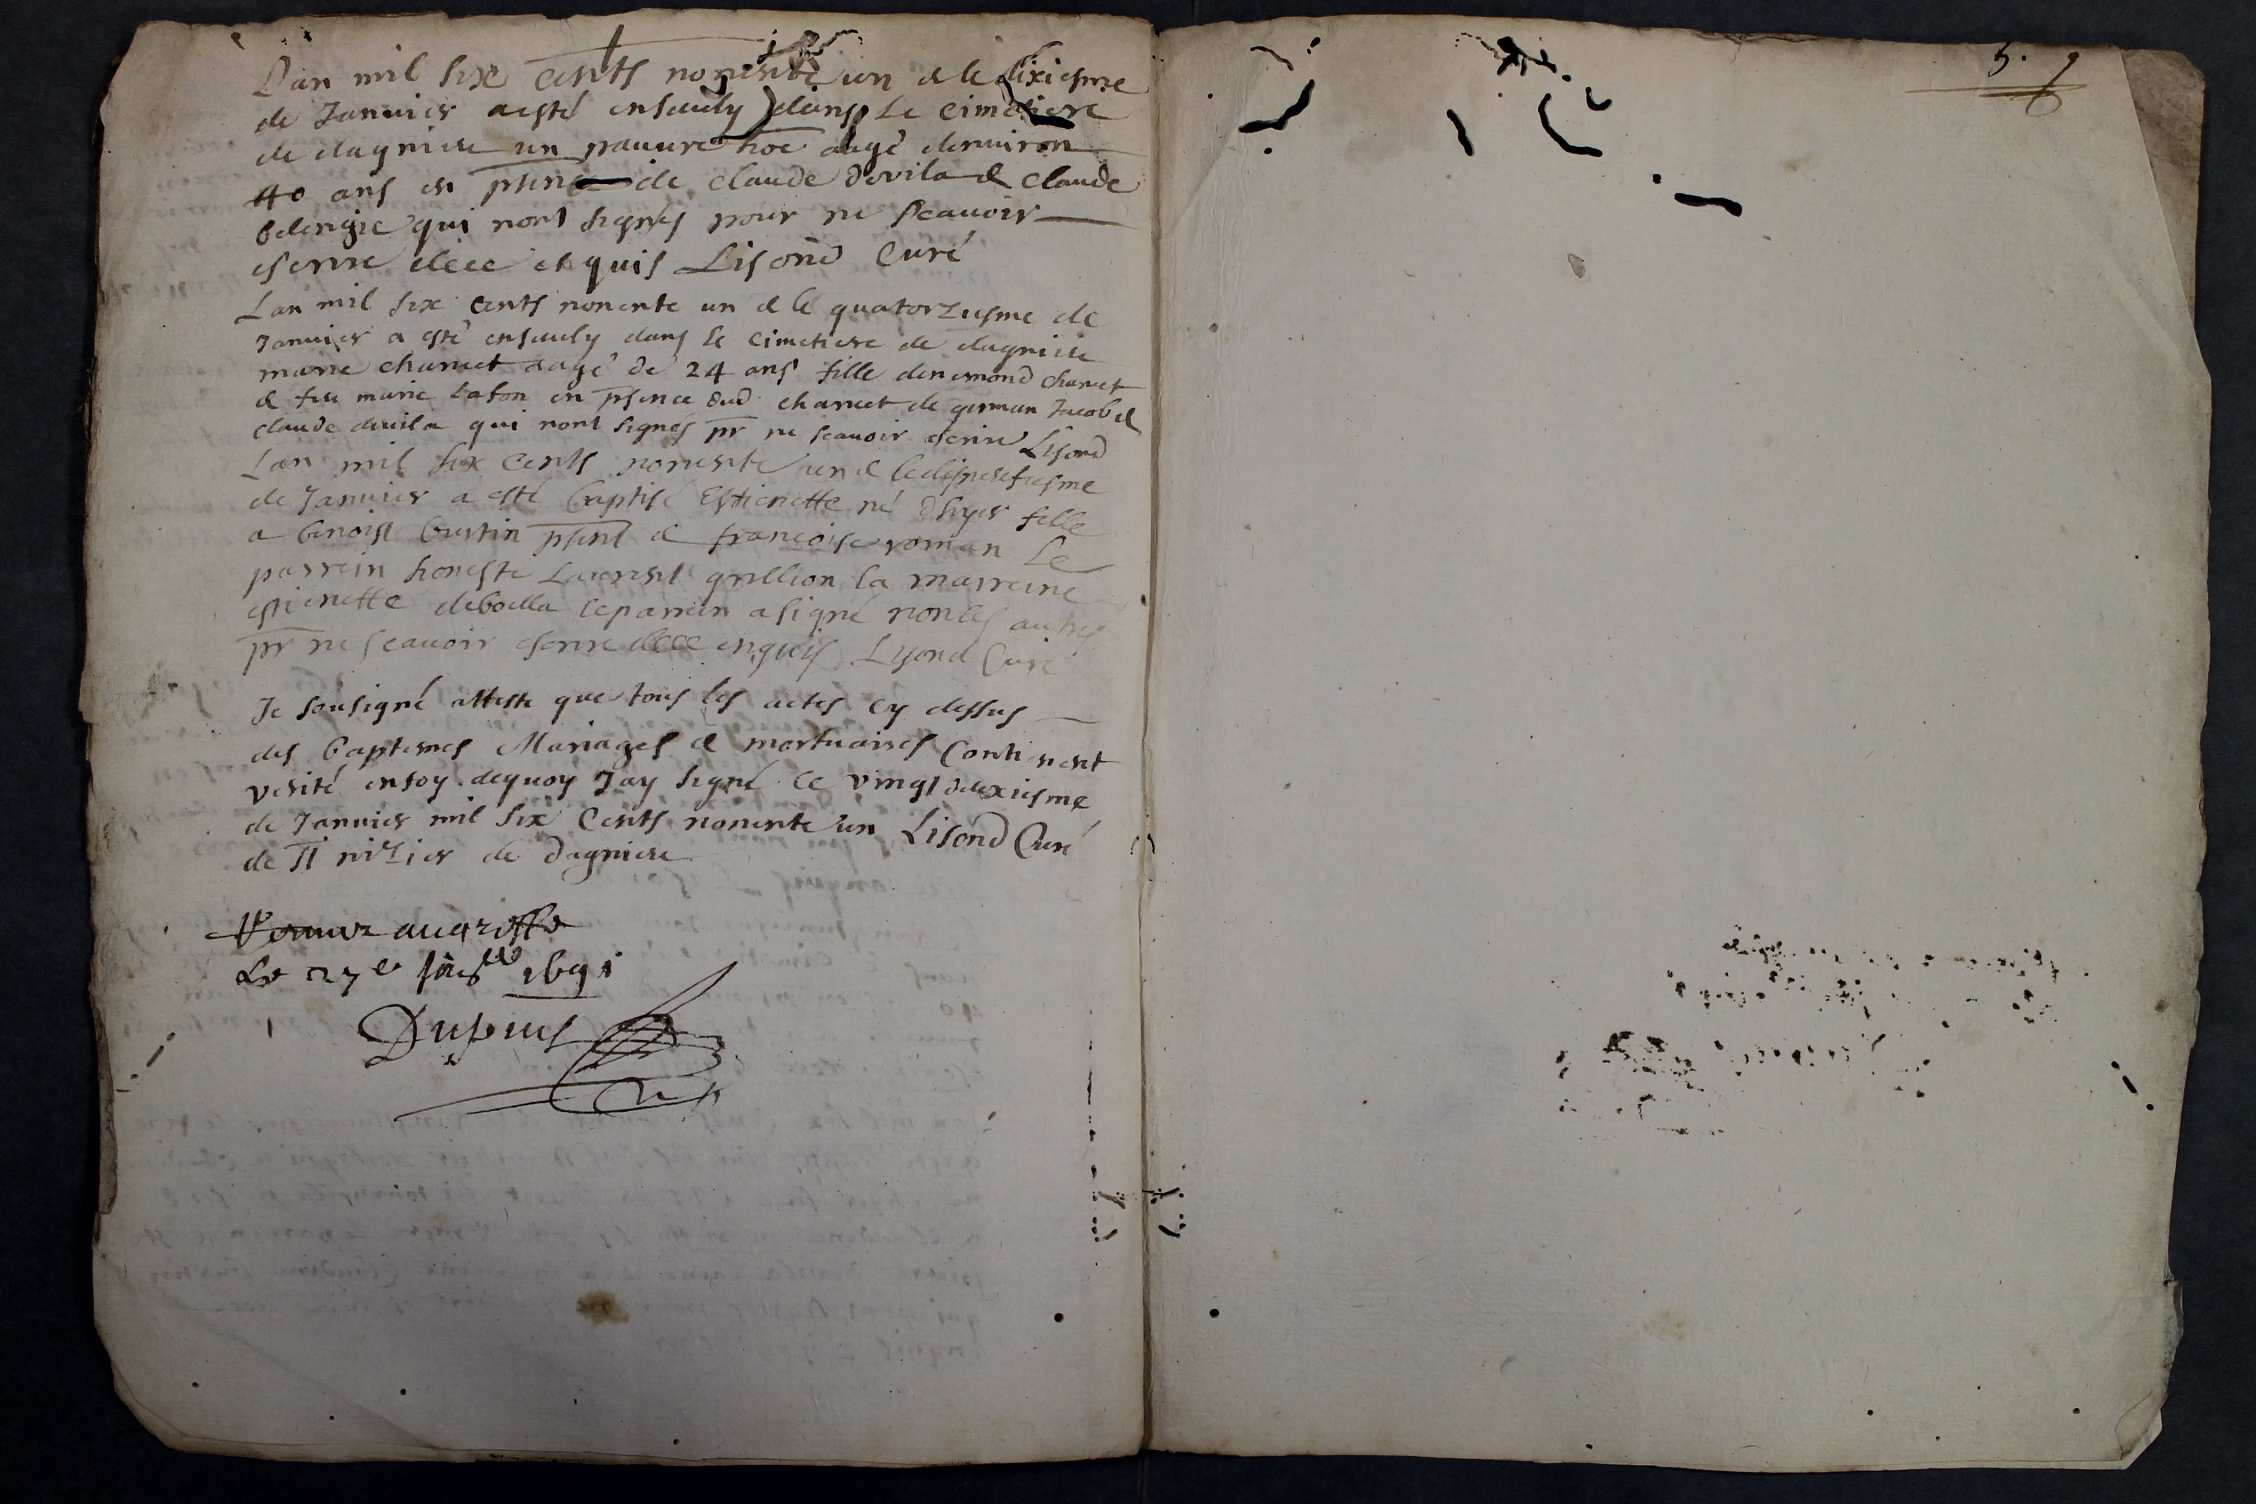 Lan mil six cents nonente un & le sixiesme
de Janvier a esté ensevely dans le cimetiere
de dagniere un pauvre hoe aagé denviron
40 ans en psence de claude devila & claude
qui nont signés pour ne scavoir
escrire de ce enquis Lisond Curé
Lan mil six cents nonente un & le quatorziesme de
Janvier a esté ensevely dans le cimetiere de dagniere
marie charvet aagé de 24 ans fille denemond charvet
& feu marie en psence dud charvet de german Jacob &
claude devila qui nont signés pr ne scavoir escrire Lisond
Lan mil six cents nonente un & le
de Janvier a esté baptisé Estienette né dhyer fille
a benoist psent & francoise roman le
parrein honeste Laurent grillion la marreine
estienette le parrein a signé non les autres
pr ne scavoir escrire de ce enquis Lisond Curé
Je sousigné atteste que tous les actes cy dessus
des baptemes Mariages & mortuaires Contienent
verité en foy dequoy Jay signé ce vingt deuxiesme
de Janvier mil six Cents nonente un Lisond Curé
de St nizier de dagniere
au greffe
Le 27e 1691
Dupuis
5.